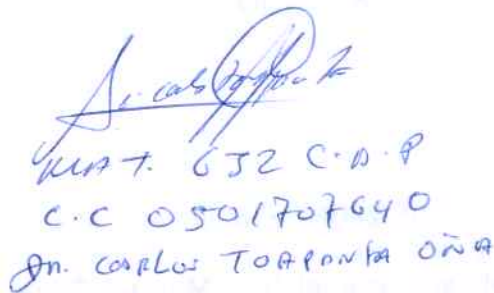 MAT. 632 C.A.P
C.C 0501707640
Dr. CARLOS TOAPANTA OÑA